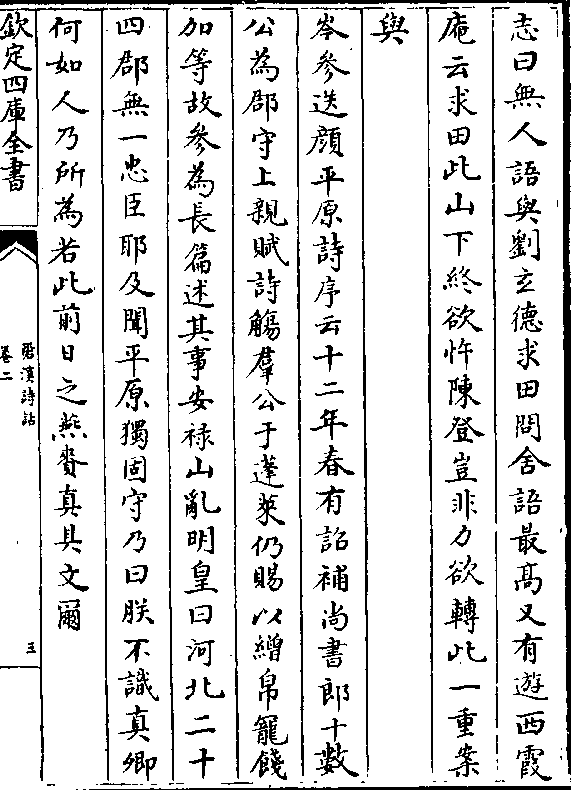 志曰無人語與劉玄德求田問舍語最高又有遊西霞
庵云求田此山下終欲忤陳登豈非力欲轉此一重案
與
岑參送顔平原詩序云十二年春有詔補尚書郎十數
公為郡守上親賦詩觴羣公于蓬萊仍賜以繒帛寵餞
加等故參為長篇述其事安禄山亂明皇曰河北二十
四郡無一忠臣耶及聞平原獨固守乃曰朕不識真卿
何如人乃所為若此前日之燕賚真具文爾
欽定四庫全書
䂬溪詩話
卷二
五